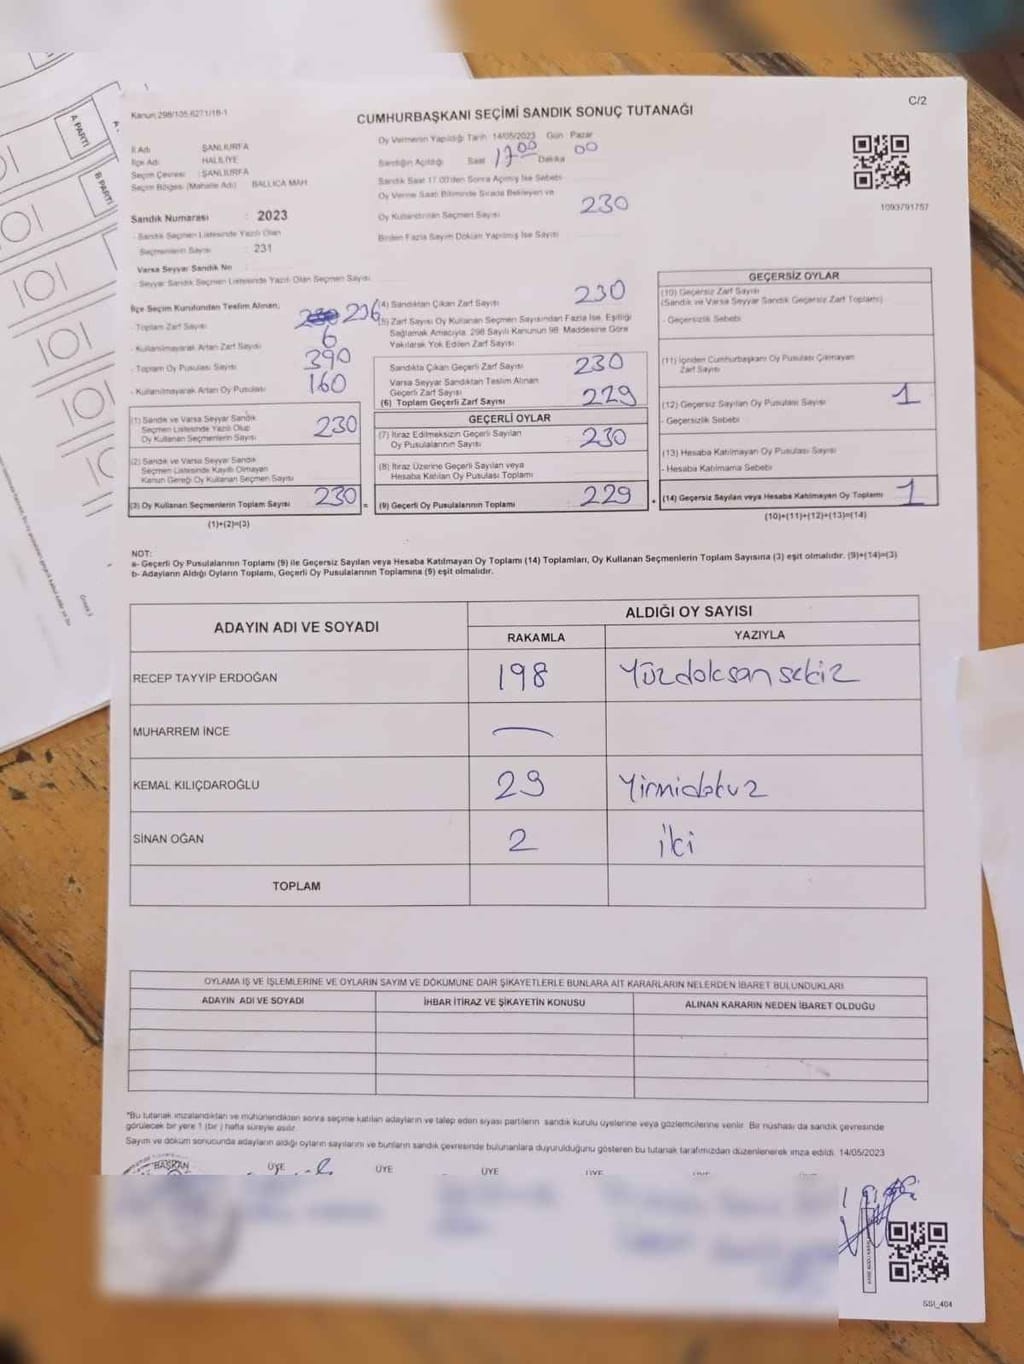 C/2
Kanun:298/105,6271/18-1
CUMHURBAŞKANI SEÇİMİ SANDIK SONUÇ TUTANAĞI
İl Adı : ŞANLIURFA
İlçe Adı : HALİLİYE
Seçim Çevresi : ŞANLIURFA
Seçim Bölgesi (Mahalle Adı) : BALLICA MAH
Sandık Numarası : 2023
- Sandık Seçmen Listesinde Yazılı Olan
Seçmenlerin Sayısı : 231
Varsa Seyyar Sandık No
- Seyyar Sandık Seçmen Listesinde Yazılı Olan Seçmen Sayısı
Oy Vermenin Yapıldığı Tarih 14/05/2023 Gün Pazar
Sandığın Açıldığı Saat 17:00 Dakika 00
Sandık Saat 17.00'den Sonra Açılmış İse Sebebi
Oy Verme Saati Bitiminde Sırada Bekleyen ve
Oy Kullandırılan Seçmen Sayısı 230
Birden Fazla Sayım Döküm Yapılmış İse Sayısı
1093791757
İlçe Seçim Kurulundan Teslim Alınan;
- Toplam Zarf Sayısı 236
- Kullanılmayarak Artan Zarf Sayısı 6
- Toplam Oy Pusulası Sayısı 390
- Kullanılmayarak Artan Oy Pusulası 160
(1) Sandık ve Varsa Seyyar Sandık
Seçmen Listesinde Yazılı Olup
Oy Kullanan Seçmenlerin Sayısı 230
(2) Sandık ve Varsa Seyyar Sandık
Seçmen Listesinde Kayıtlı Olmayan
Kanun Gereği Oy Kullanan Seçmen Sayısı
(3) Oy Kullanan Seçmenlerin Toplam Sayısı 230 =
(1)+(2)=(3)
(4) Sandıktan Çıkan Zarf Sayısı 230
(5) Zarf Sayısı Oy Kullanan Seçmen Sayısından Fazla İse, Eşitliği
Sağlamak Amacıyla, 298 Sayılı Kanunun 98. Maddesine Göre
Yakılarak Yok Edilen Zarf Sayısı
Sandıkta Çıkan Geçerli Zarf Sayısı 230
Varsa Seyyar Sandıktan Teslim Alınan
Geçerli Zarf Sayısı
(6) Toplam Geçerli Zarf Sayısı 229
GEÇERLİ OYLAR
(7) İtiraz Edilmeksizin Geçerli Sayılan
Oy Pusulalarının Sayısı 230
(8) İtiraz Üzerine Geçerli Sayılan veya
Hesaba Katılan Oy Pusulası Toplamı
(9) Geçerli Oy Pusulalarının Toplamı 229 +
GEÇERSİZ OYLAR
(10) Geçersiz Zarf Sayısı
(Sandık ve Varsa Seyyar Sandık Geçersiz Zarf Toplamı)
- Geçersizlik Sebebi
(11) İçinden Cumhurbaşkanı Oy Pusulası Çıkmayan
Zarf Sayısı
(12) Geçersiz Sayılan Oy Pusulası Sayısı 1
- Geçersizlik Sebebi
(13) Hesaba Katılmayan Oy Pusulası Sayısı
- Hesaba Katılmama Sebebi
(14) Geçersiz Sayılan veya Hesaba Katılmayan Oy Toplamı 1
(10)+(11)+(12)+(13)=(14)
NOT:
a- Geçerli Oy Pusulalarının Toplamı (9) ile Geçersiz Sayılan veya Hesaba Katılmayan Oy Toplamı (14) Toplamları, Oy Kullanan Seçmenlerin Toplam Sayısına (3) eşit olmalıdır. (9)+(14)=(3)
b- Adayların Aldığı Oyların Toplamı, Geçerli Oy Pusulalarının Toplamına (9) eşit olmalıdır.
ADAYIN ADI VE SOYADI
ALDIĞI OY SAYISI
RAKAMLA YAZIYLA
RECEP TAYYİP ERDOĞAN 198 Yüzdoksansekiz
MUHARREM İNCE —
KEMAL KILIÇDAROĞLU 29 Yirmidokuz
SİNAN OĞAN 2 iki
TOPLAM
OYLAMA İŞ VE İŞLEMLERİNE VE OYLARIN SAYIM VE DÖKÜMÜNE DAİR ŞİKAYETLERLE BUNLARA AİT KARARLARIN NELERDEN İBARET BULUNDUKLARI
ADAYIN ADI VE SOYADI İHBAR İTİRAZ VE ŞİKAYETİN KONUSU ALINAN KARARIN NEDEN İBARET OLDUĞU
*Bu tutanak imzalandıktan ve mühürlendikten sonra seçime katılan adayların ve talep eden siyasi partilerin sandık kurulu üyelerine veya gözlemcilerine verilir. Bir nüshası da sandık çevresinde
görülecek bir yere 1 (bir) hafta süreyle asılır.
Sayım ve döküm sonucunda adayların aldığı oyların sayılarını ve bunların sandık çevresinde bulunanlara duyurulduğunu gösteren bu tutanak tarafımızdan düzenlenerek imza edildi. 14/05/2023
BAŞKAN ÜYE ÜYE ÜYE ÜYE
SSI_404
A PARTİ
B PARTİ